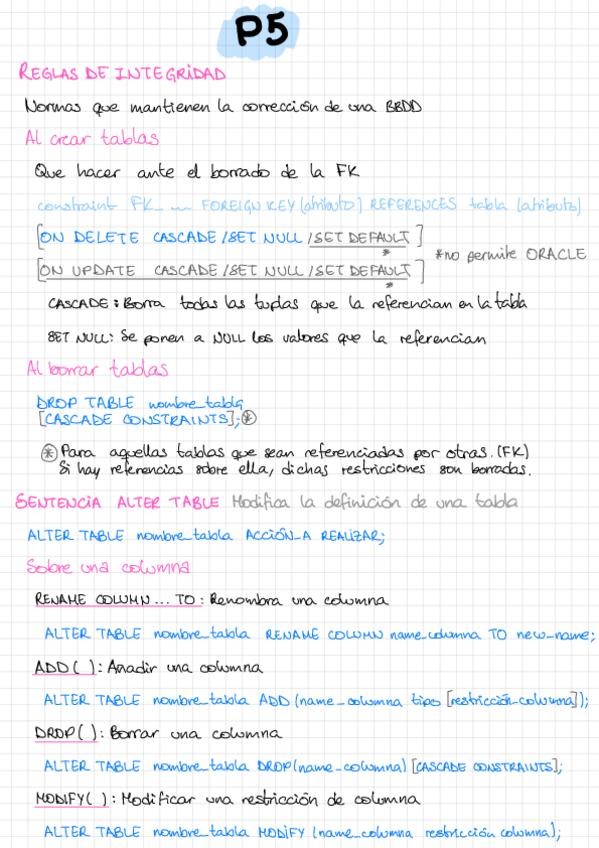 P5
REGLAS DE INTEGRIDAD
Normas que mantienen la corrección de una BBDD
Al crear tablas
Que hacer ante el borrado de la FK
constraint FK_... FOREIGN KEY (atributo) REFERENCES tabla (atributo)
[ON DELETE CASCADE / SET NULL / SET DEFAULT]
*
*no permite ORACLE
[ON UPDATE CASCADE / SET NULL / SET DEFAULT]
*
CASCADE: Borra todas las tuplas que la referencian en la tabla
SET NULL: Se ponen a NULL los valores que la referencian
Al borrar tablas
DROP TABLE nombre_tabla
[CASCADE CONSTRAINTS];*
* Para aquellas tablas que sean referenciadas por otras. (FK)
Si hay referencias sobre ella, dichas restricciones son borradas.
SENTENCIA ALTER TABLE Modifica la definición de una tabla
ALTER TABLE nombre_tabla ACCIÓN_A REALIZAR;
Sobre una columna
RENAME COLUMN... TO: Renombra una columna
ALTER TABLE nombre_tabla RENAME COLUMN name_columna TO new_name;
ADD( ): Añadir una columna
ALTER TABLE nombre_tabla ADD (name_columna tipo [restricción_columna]);
DROP( ): Borrar una columna
ALTER TABLE nombre_tabla DROP(name_columna) [CASCADE CONSTRAINTS];
MODIFY( ): Modificar una restricción de columna
ALTER TABLE nombre_tabla MODIFY (name_columna restricción columna);